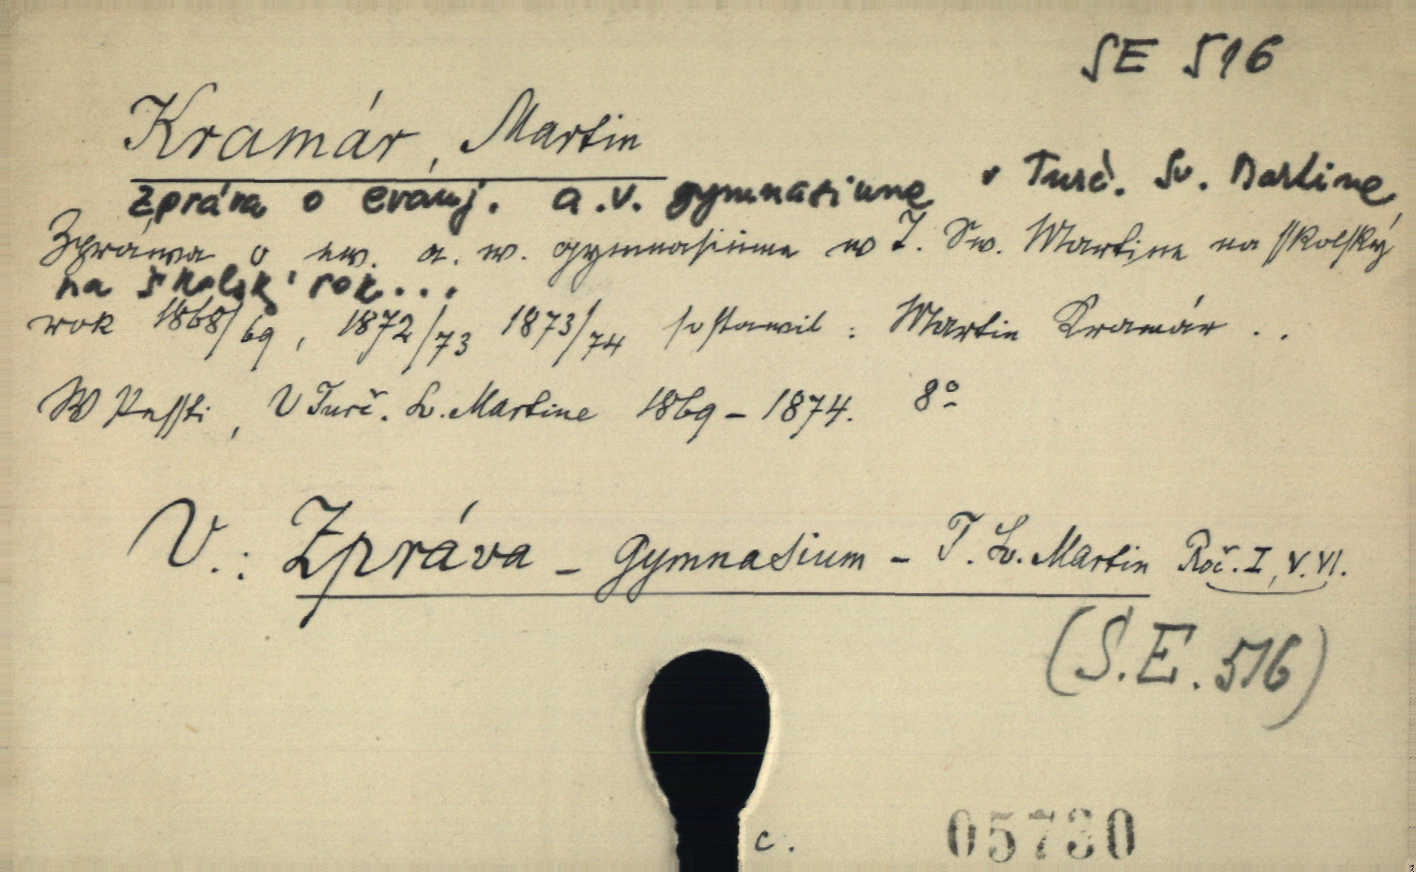 SE 516
Kramár, Martin
Zpráva o evanj. a.v. gymnasiume v Turč. Sv. Martine
Zpráwa o ew. a. w. gymnasiume w T. Sw. Martine na sskolský
na školský rok...
rok 1868/69, 1872/73 1873/74 sostawil : Martin Kramár . .
W Pessti, V Turč. Sv. Martine 1869 - 1874. 8º
V.: Zpráva - Gymnasium - T. Sv. Martin Roč. I, V. VI.
(S.E. 516)
c. 05730